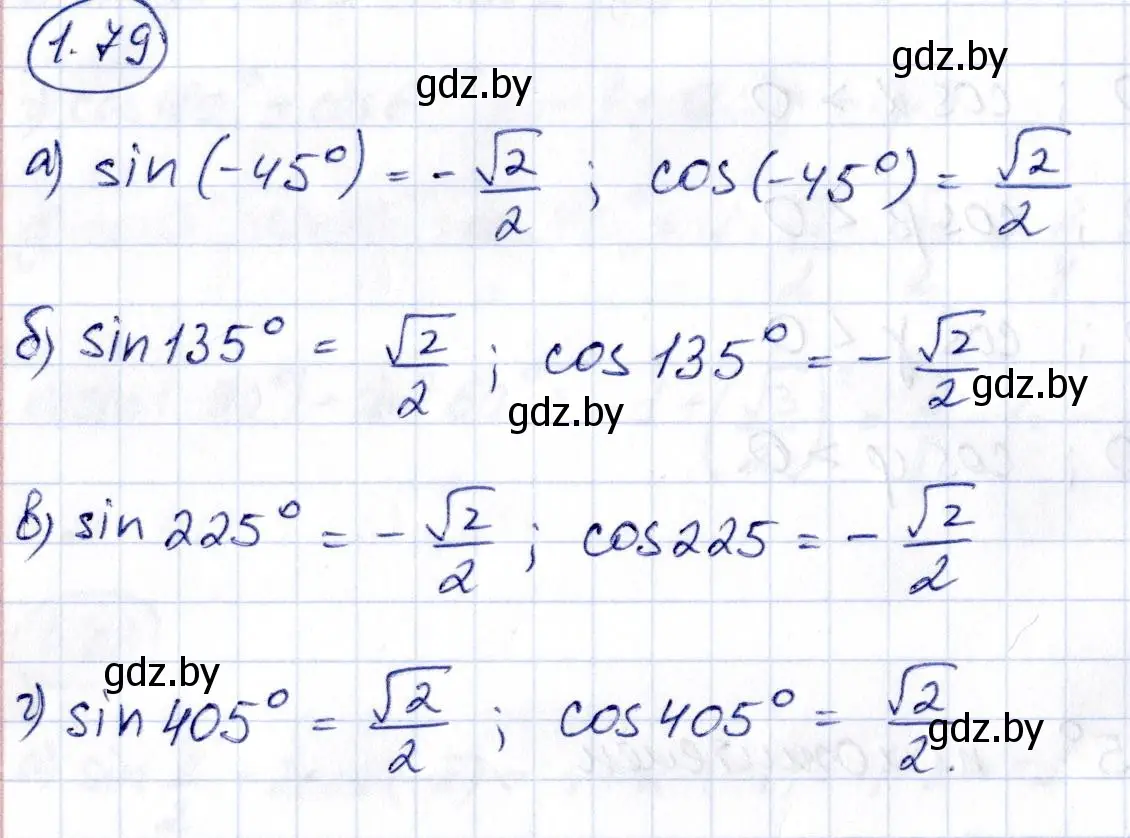 1.79
gdz.by
gdz.by
а) sin(-45°) = -√2/2 ; cos(-45°) = √2/2
б) sin 135° = √2/2 ; cos 135° = -√2/2
gdz.by
gdz.by
в) sin 225° = -√2/2 ; cos 225 = -√2/2
gdz.by
г) sin 405° = √2/2 ; cos 405° = √2/2.
gdz.by